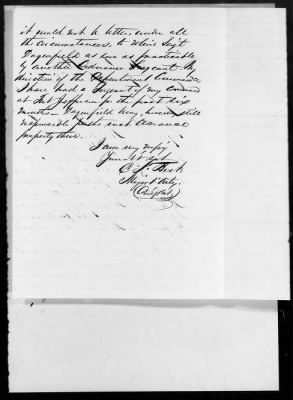 it would not be better, under all
the circumstances, to relieve Sergt
Dagenfield as soon as practicable
by another Ordnance Sergeant. By
direction of the Department Commander
I have had a Sergeant of my command
at Fort Jefferson for the past six
months – Dagenfield being, however, still
responsible for the Ordnance
property there.
I am, very resp'y
Your obt Servt